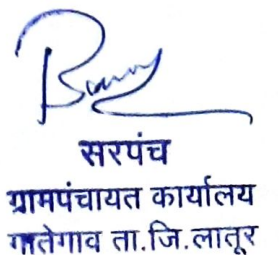 सरपंच
ग्रामपंचायत कार्यालय
गातेगाव ता.जि.लातूर